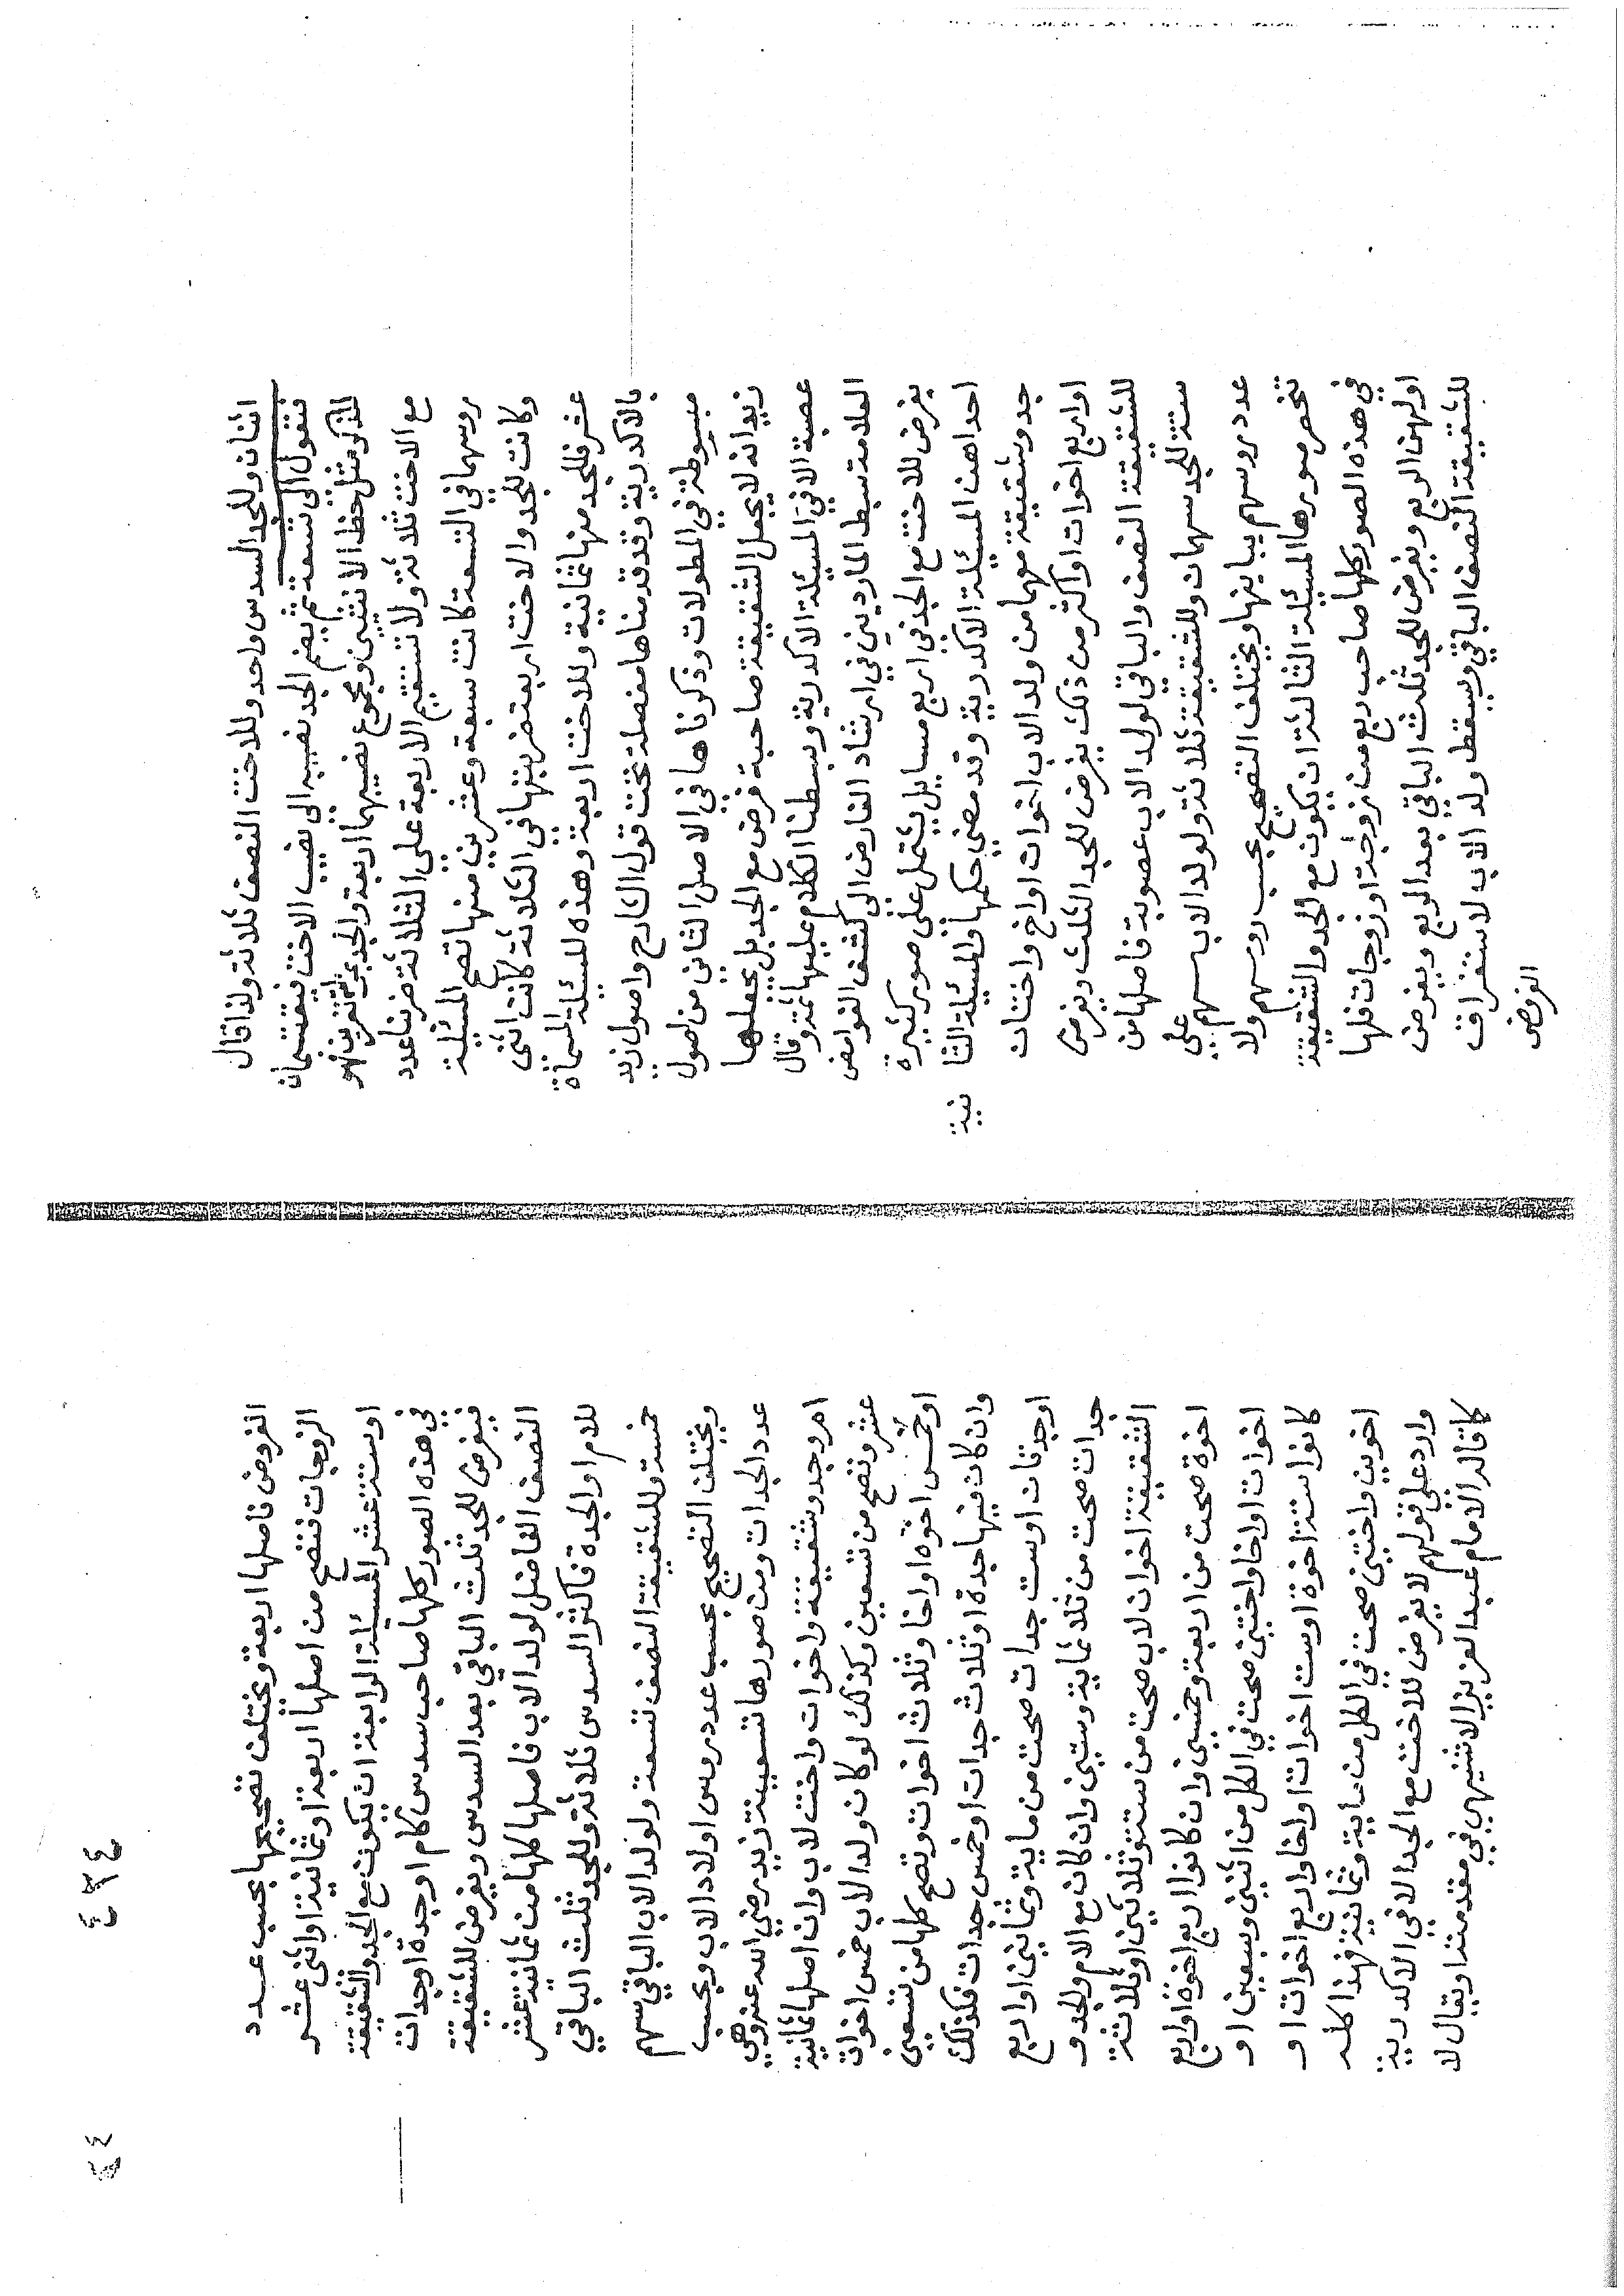 اثنان وللجد السدس واحد وللاخت النصف ثلاثة ولذا قال
فتقول الى تسعة ثم يضم الجد نصيبه الى نصيب الاخت فيقتسمان
للذكر مثل حظ الانثيين ومجموع نصيبهما اربعة والجد فهو
مع الاخت ثلاثة ولا تستقيم الاربعة على الثلاثة ضربنا عدد
روسهما في التسعة كانت سبعة وعشرين منها تصح المسئلة
وكانت للجد والاخت اربعة ضربتها في الثلاثة كانت اثنى
عشر فللجد منها ثمانية وللاخت اربعة وهذه المسئلة المسماة
بالاكدرية وقد قدمناها مفصلة تحت قول الشارح واصول زيد
مبسوطة في المطولات وذكرناها في الاصل الثاني من اصول
زيد انه لا يجعل الشقيقة صاحبة فرض مع الجد بل يجعلها
عصبة الا في المسيئلة الاكدرية وبسطنا الكلام عليها ثمة وقال
العلامة سبط المارديني في ارشاد الفارض الى كشف الغوامض
يفرض للاخت مع الجد في اربع مسايل يشتمل على صور كثيرة
احداهن المسيئلة الاكدرية وقد مضى حكمها والمسيئلة الثا
نية
جد وشقيقة معهما من ولد الاب اخوات او اخ واختان
او اربع اخوات او اكثر من ذلك يفرض للجد الثلث ويفرض
للشقيقة النصف والباقي لولد الاب عصوبة فاصلها من
ستة للجد سهمان وللشقيقة ثلاثة ولولد الاب سهم على
عدد روسهم يباينها ويختلف التصحيح بحسب روسهم ولا
تنحصر صورها المسيئلة الثالثة ان يكون مع الجد والشقيقة
في هذه الصور كلها صاحب ربع من زوجة او زوجات فلها
او لهن الربع ويفرض للجد ثلث الباقي بعد الربع ويفرض
للشقيقة النصف الباقي ويسقط ولد الاب لاستغراق
الفروض
الفروض فاصلها اربعة ويختلف تصحيحها بحسب عدد
الزوجات فتصح من اصلها اربعة او ثمانية او اثنى عشر
او ستة عشر المسيئلة الرابعة ان يكون مع الجد والشقيقة
في هذه الصور كلها صاحب سدس كام او جدة او جدات
فيفرض للجد ثلث الباقي بعد السدس ويفرض للشقيقة
النصف الفاضل لولد الاب فاصلها كلها من ثمانية عشر
للام او الجدة فاكثر السدس ثلاثة وللجد ثلث الباقي
خمسة وللشقيقة النصف تسعة ولولد الاب الباقي سهم
ويختلف التصحيح بحسب عدد روس اولاد الاب وبحسب
عدد الجدات ومن صورها تسعينية زيد رضي الله عنه وهي
ام وجد وشقيقة واخوات واخت لاب وان اصلها ثمانية
عشر وتصح من تسعين وكذلك لو كان ولد الاب خمس اخوات
او خمس اخوة او اخا وثلاث اخوات وتصح كلها من تسعين
وان كان فيها جدة او ثلاث جدات او خمس جدات فكذلك
او جدتان او ست جدات صحت من ماية وثمانين او اربع
جدات صحت من ثلاثماية وستين وان كان مع الام والجد و
الشقيقة اخوان لاب صحت من ستة وثلاثين او ثلاثة
اخوة صحت من اربعة وخمسين وان كانوا اربع اخوة او اربع
اخوات او اخا واختين صحت في الكل من اثنين وسبعين او
كانوا ستة اخوة او ست اخوات او اخا واربع اخوات او
اخوين واختين صحت في الكل من ماية وثمانية فهذا كله
وارد على قولهم لا يفرض للاخت مع الجد الا في الاكدرية
كما قاله الامام عبد العزيز الاشنهي في مقدمته او يقال لا